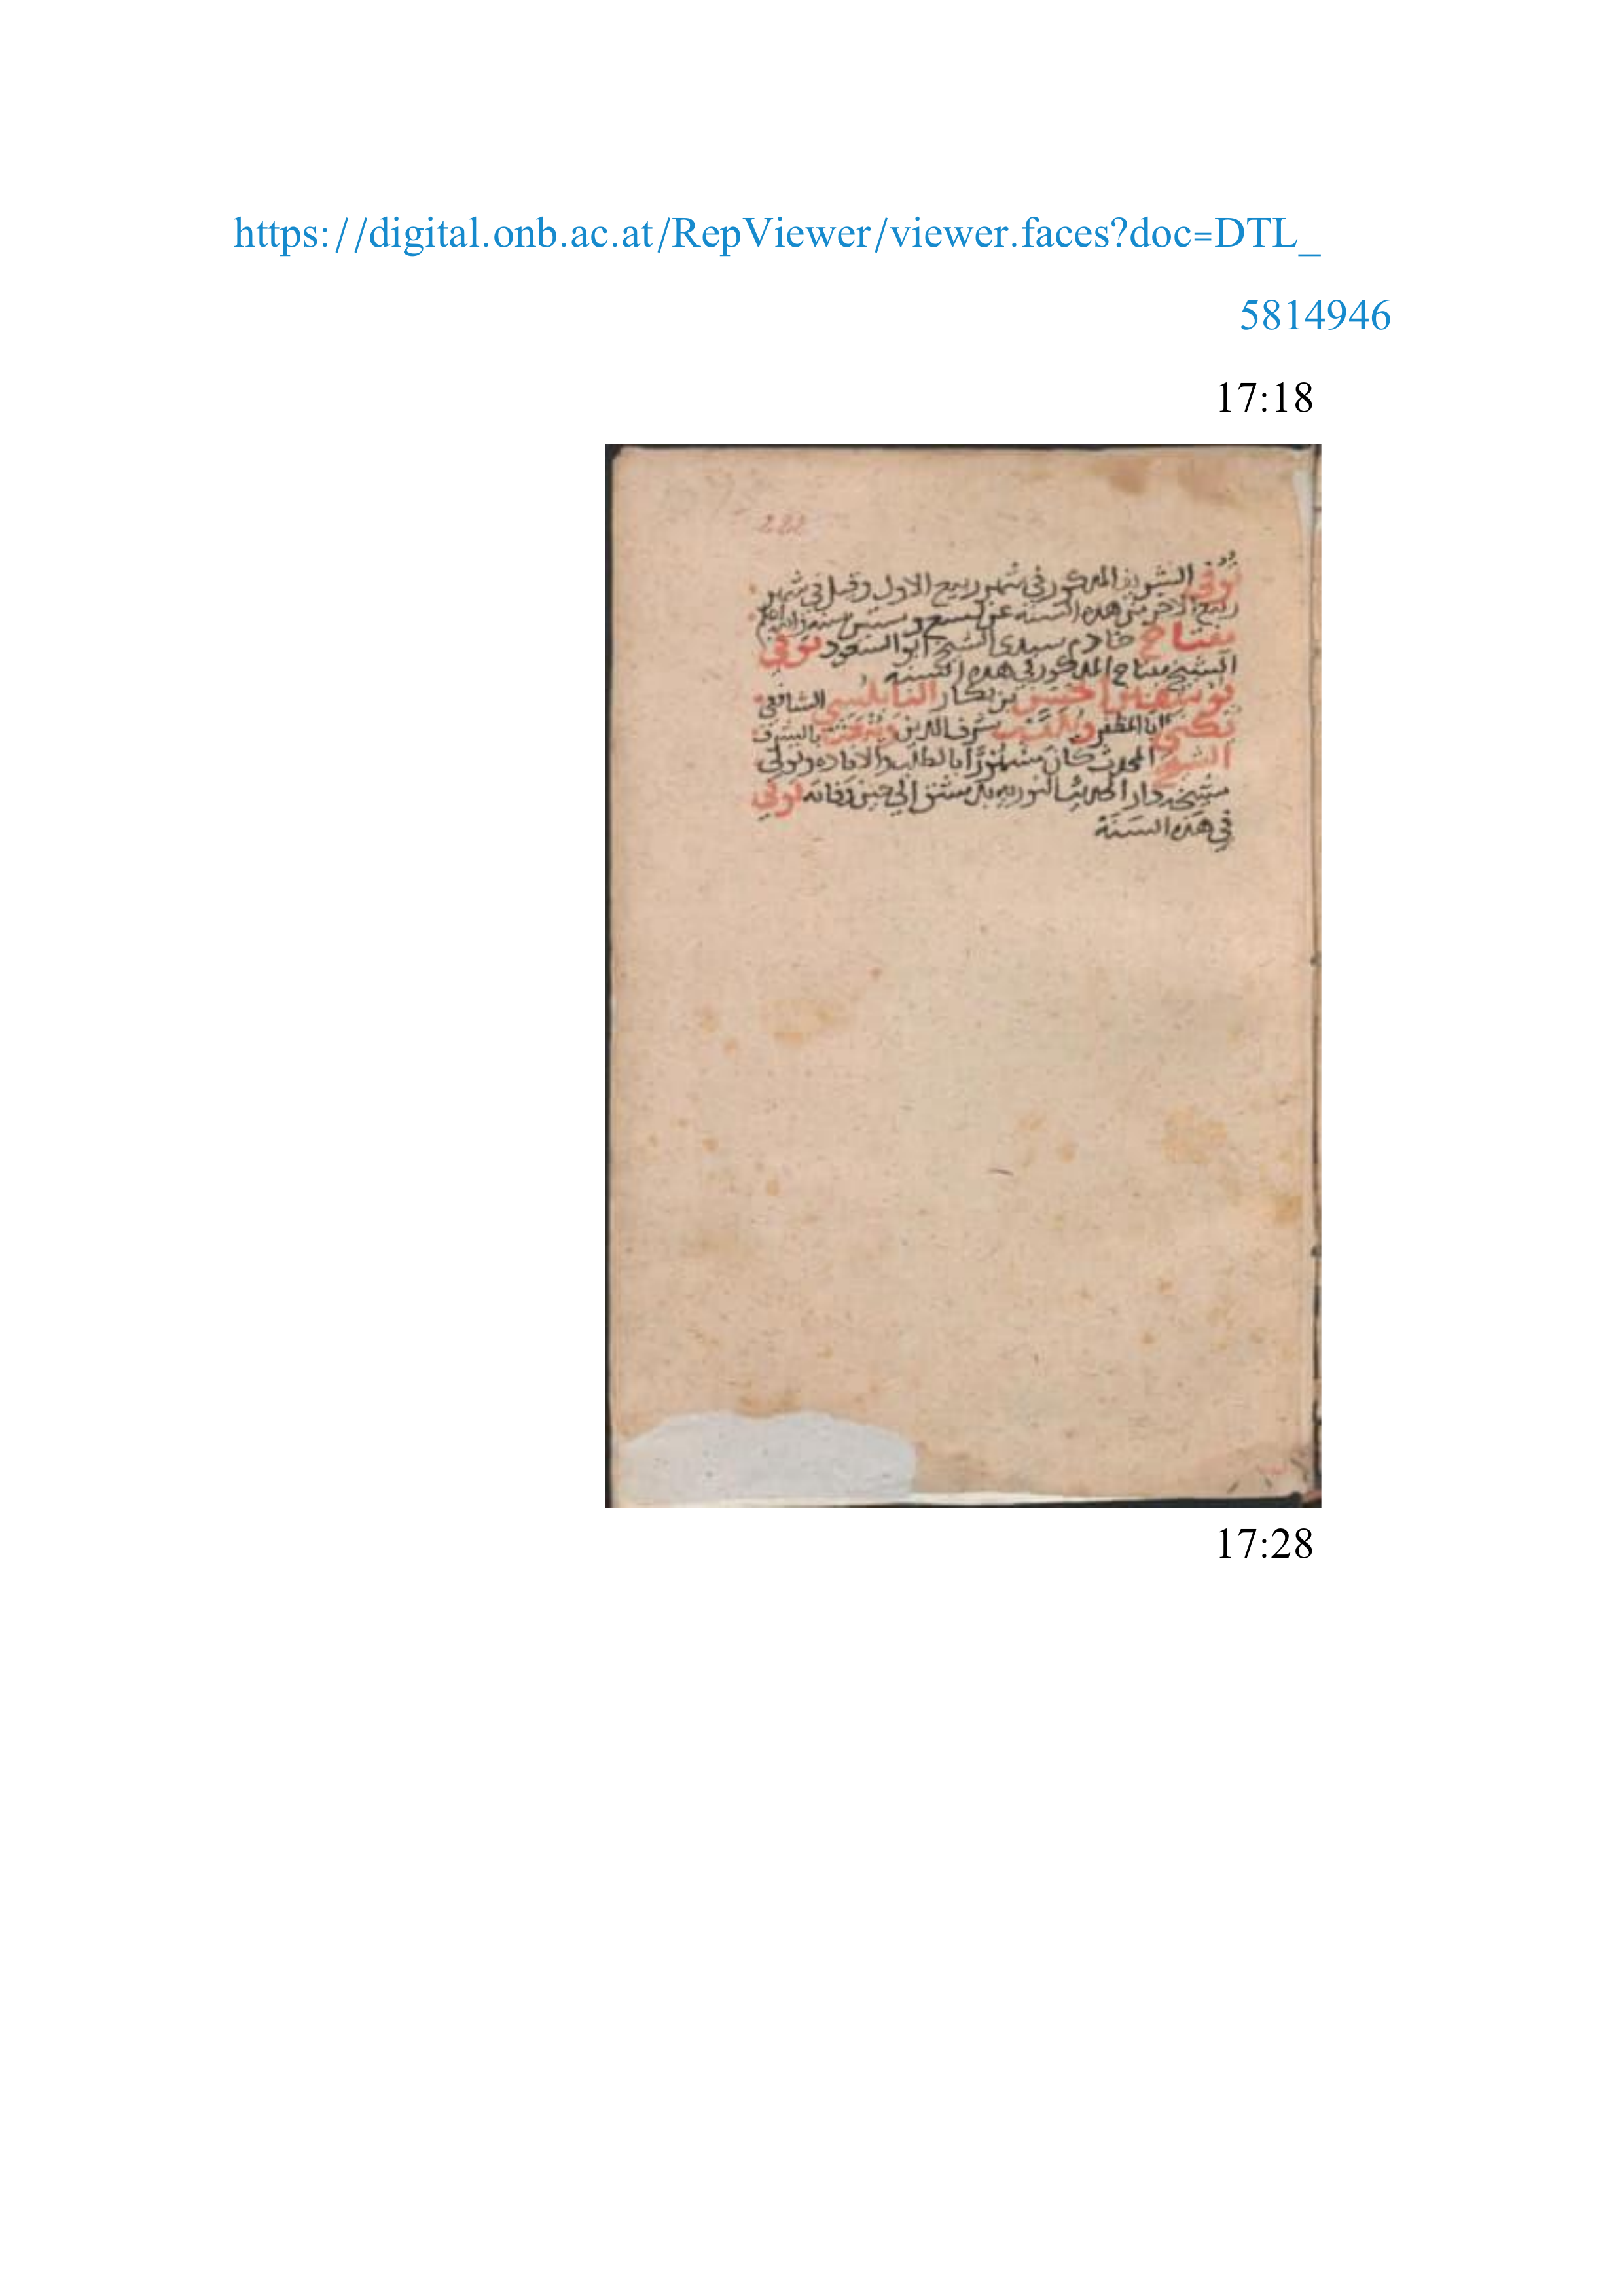 https://digital.onb.ac.at/RepViewer/viewer.faces?doc=DTL_
5814946
17:18
222
توفى الشريف المذكور في شهر ربيع الاول وقيل في شهر
ربيع الاخر من هذه السنه عن تسع وستين سنه والله اعلم
مفتاح خادم سيدي الشيخ ابو السعود توفي
الشيخ مفتاح المذكور في هذه السنه
يوسف بن الحسن بن بكار النابلسي الشافعي
يكنى ابا المظفر ويلقب شرف الدين وينعت بالشرف
الشيخ المحدث كان مشهورًا بالطلب والافاده وتولى
مشيخه دار الحديث النوريه بدمشق الى حين وفاته توفي
في هذه السنة
17:28